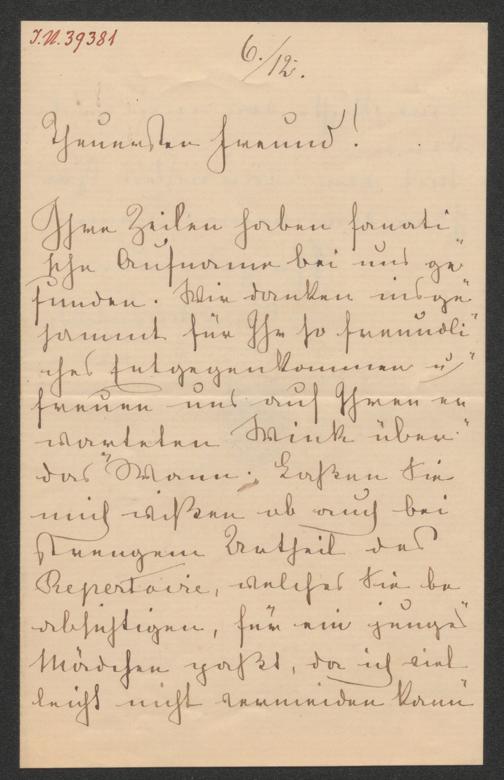 I.N. 39381
6./12.
Theuersten Freund!
Ihre Zeilen haben fanati
sche Aufname bei uns ge"
funden. Wir danken insge"
sammt für Ihr so freundli"
ches Entgegenkommen u"
freuen uns auf Ihren er
warteten Wink über"
das "Wann". Laßen Sie
mich wißen ob auch bei
strengem Urtheil das
Repertoire, welches Sie be
absichtigen, für ein junges
Mädchen paßt, da ich viel
leicht nicht vermeiden kann"